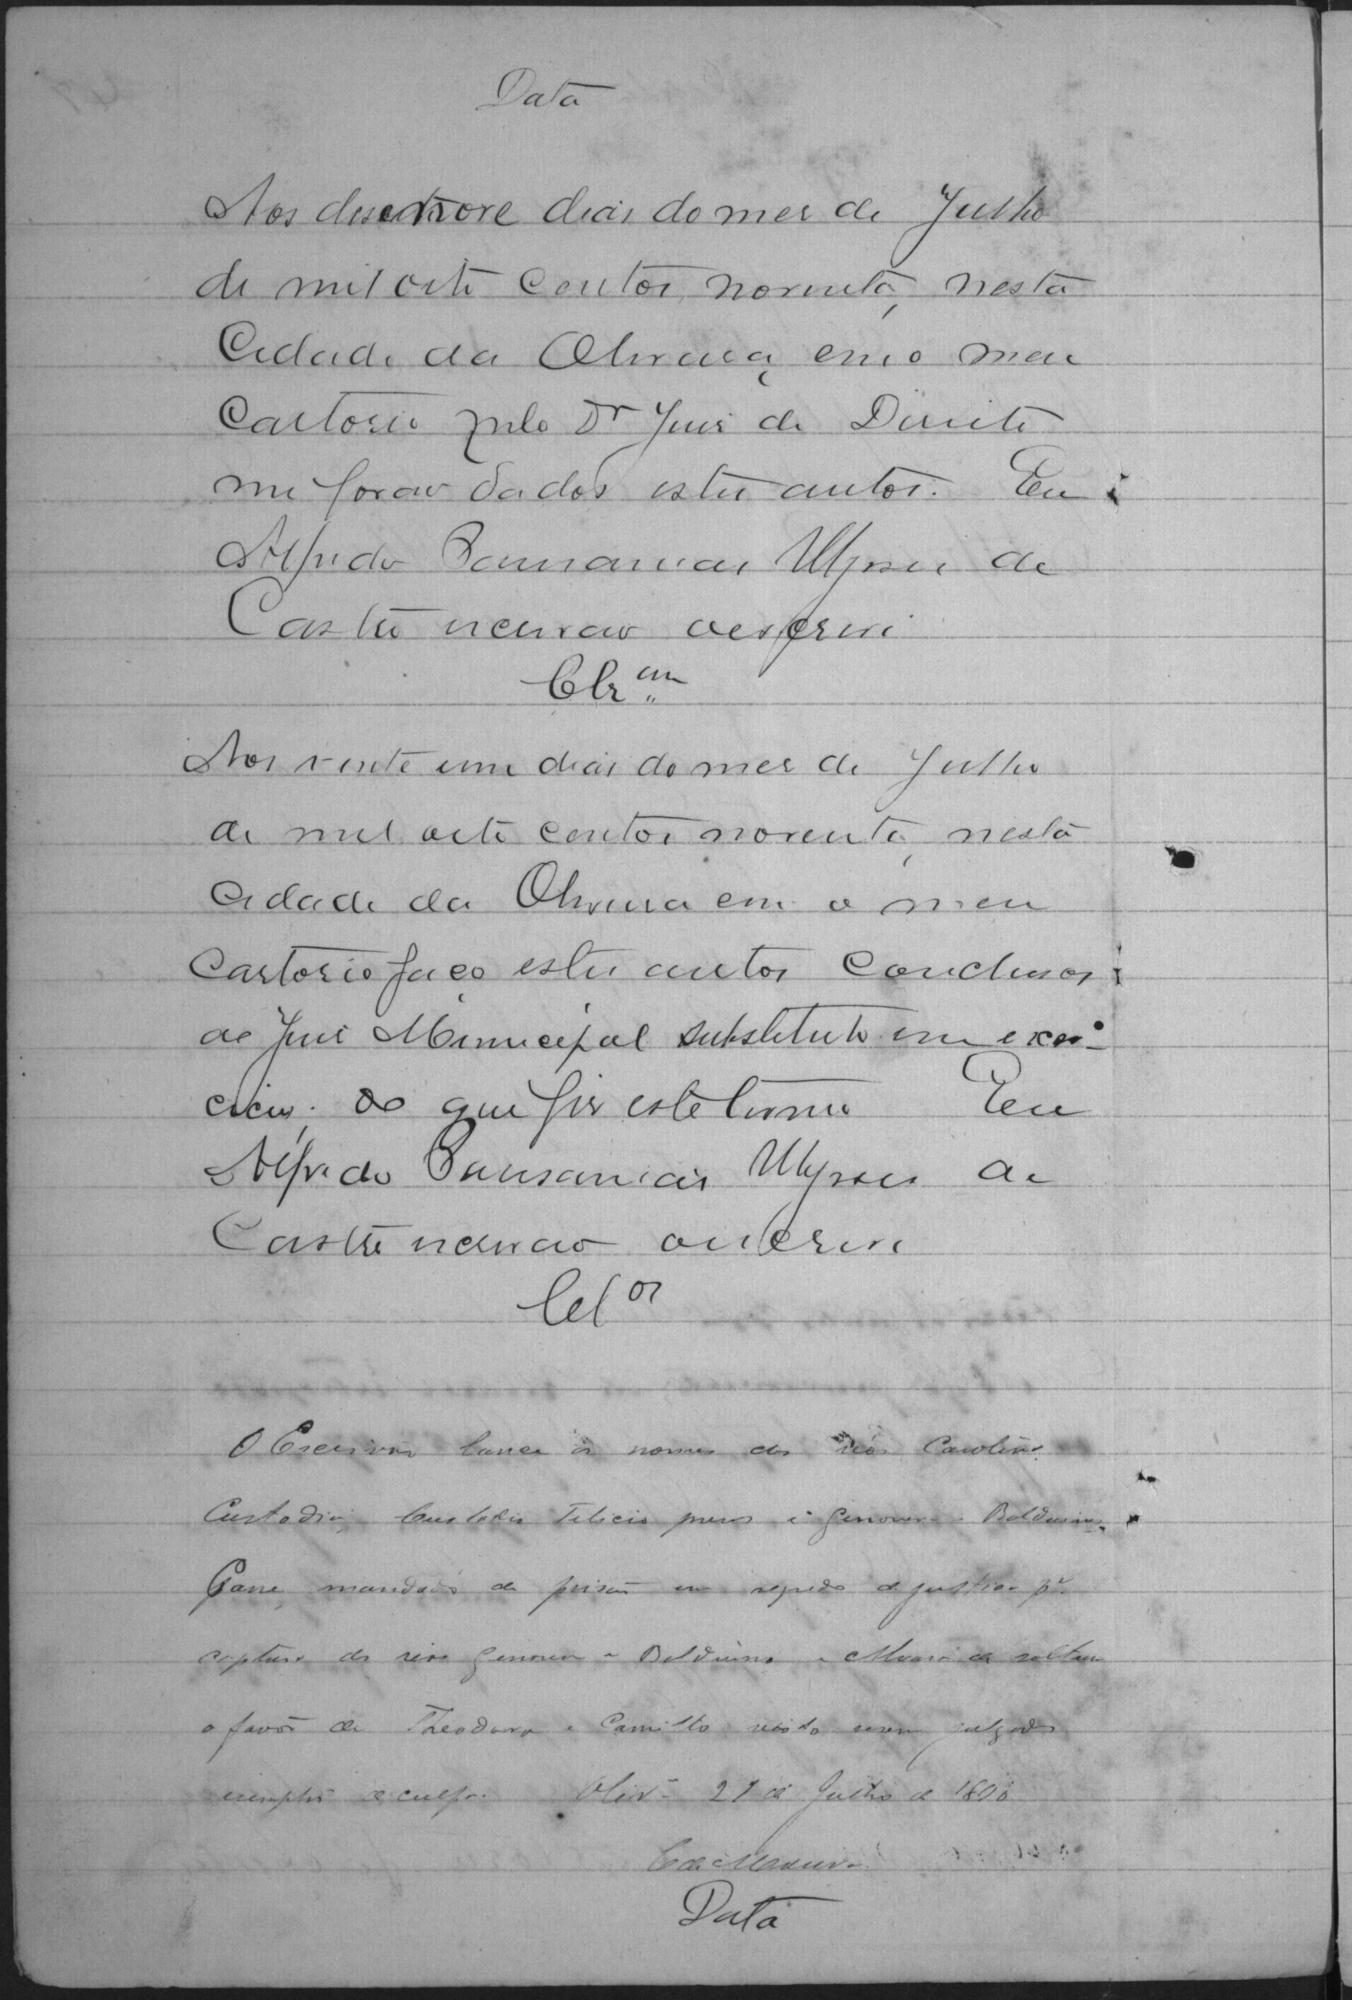 Data
Aos desenove dias do mes de Julho
de mil oito centos noventa, nesta
Cidade da Oliveira, em o meu
Cartorio pelo Dr Juis de Direito
me forão dados estes autos. Eu
Alfredo Pausanias Ulysses de
Castro escrivão o escrevi
Clz.am
Aos vinte um dias do mes de Julho
de mil oito centos noventa, nesta
Cidade da Oliveira em o meu
Cartorio faço estes autos conclusos
ao Juis Municipal substituto em exer-
cicio, do que fis este termo Eu
Alfredo Pausanias Ulysses de
Castro escrivão o escrevi
Clos
O Escrivão lance os nomes dos réos Carolina
Custodia, Custodio Felicio presos e Genoveva Balduino.
Passe mandado de prisão em segredo de justiça pa
captura dos réos Genoveva e Balduino e Alvará de soltura
a favor de Theodoro e Camillo visto serem julgados
isemptos de culpa. Olivª 21 de Julho de 1890
Data